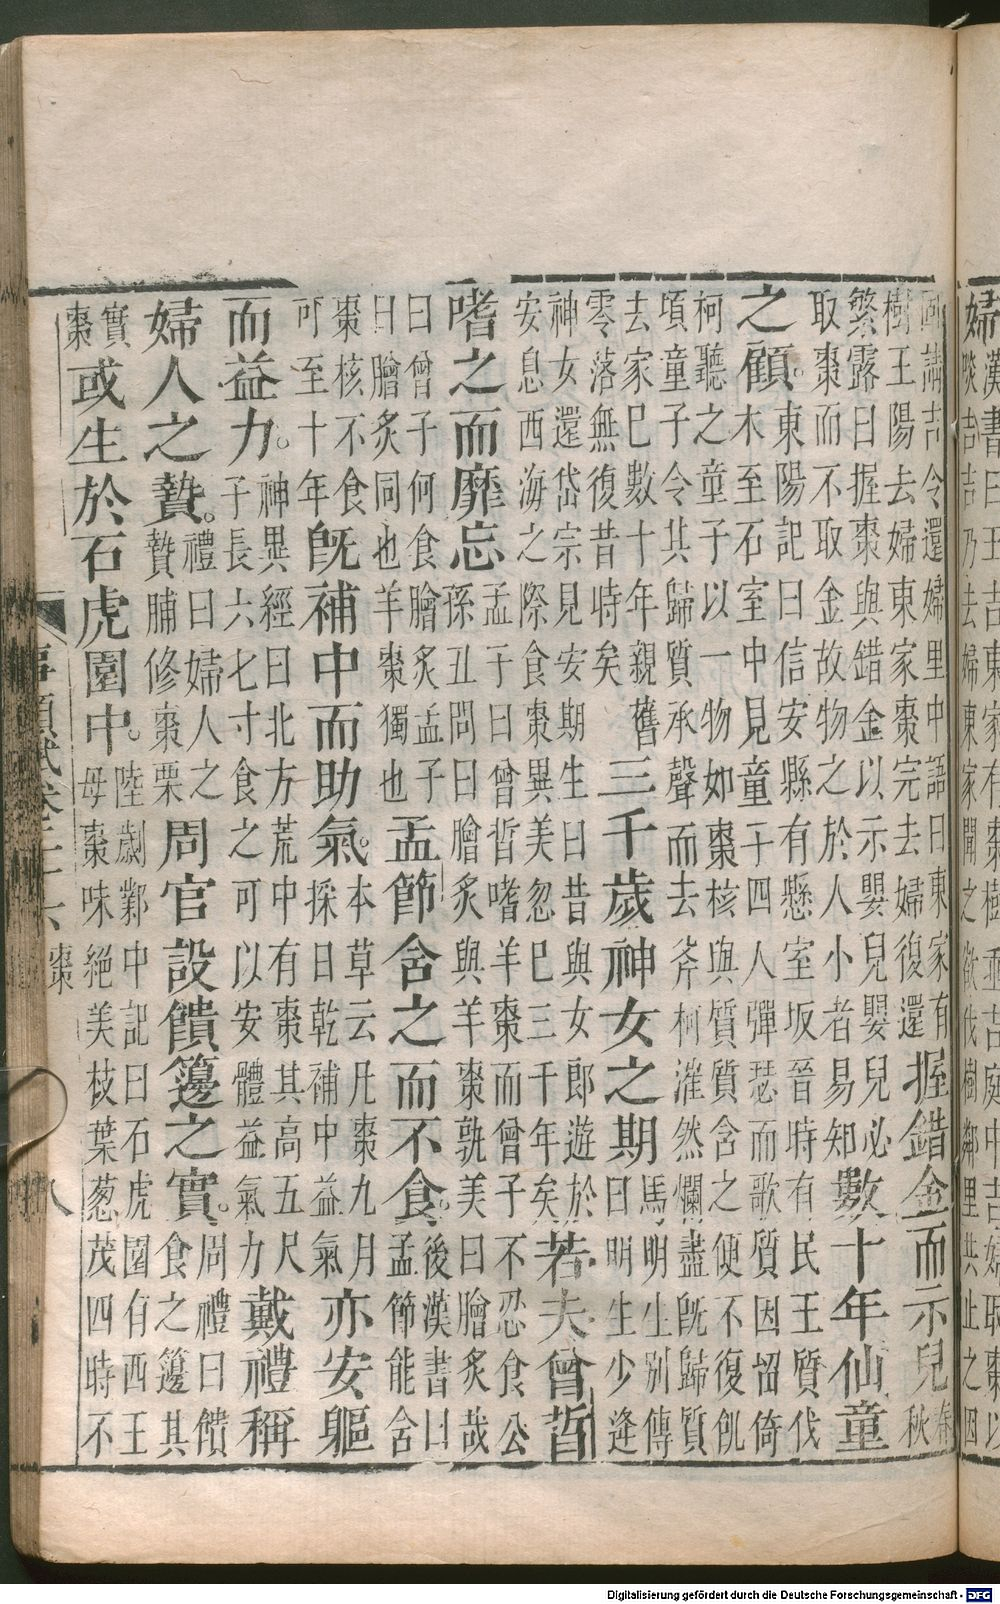 婦漢書曰王吉東家有棗樹垂吉庭中吉婦取棗以
啖吉吉乃去婦東家聞之欲伐樹鄰里共止之因
固請吉令還婦里中語曰東家有
樹王陽去婦東家棗完去婦復還
握錯金而示兒春
秋
繁露曰握棗與錯金以示嬰兒嬰兒必
取棗而不取金故物之於人小者易知
數十年仙童
之顧。東陽記曰信安縣有懸室坂晉時有民王質伐
木至石室中見童子四人彈瑟而歌質因留倚
柯聽之童子以一物如棗核與質質含之便不復飢
頃童子令其歸質承聲而去斧柯漼然爛盡既歸質
去家巳數十年親舊
零落無復昔時矣
三千歲神女之期馬明生別傳
曰明生少逢
神女還岱宗見安期生曰昔與女郎遊於
安息西海之際食棗異美忽巳三千年矣
若夫曾晳
嗜之而靡忘孟子曰曾晳嗜羊棗而曾子不忍食公
孫丑問曰膾炙與羊棗孰美曰膾炙哉
曰曾子何食膾炙孟子
曰膾炙同也羊棗獨也
孟節舍之而不食。後漢書曰
孟節能舍
棗核不食
可至十年
旣補中而助氣。本草云凡棗九月
採日乾補中益氣
亦安軀
而益力。神異經曰北方荒中有棗其高五尺
子長六七寸食之可以安體益氣力
戴禮稱
婦人之贄。禮曰婦人之
贄脯修棗栗
周官設饋籩之實。周禮曰饋
食之籩其
實
棗
或生於石虎園中。陸翽鄴中記曰石虎園有西王
母棗味絕美枝葉葱茂四時不
事類賦卷二十六 棗 八
Digitalisierung gefördert durch die Deutsche Forschungsgemeinschaft - DFG